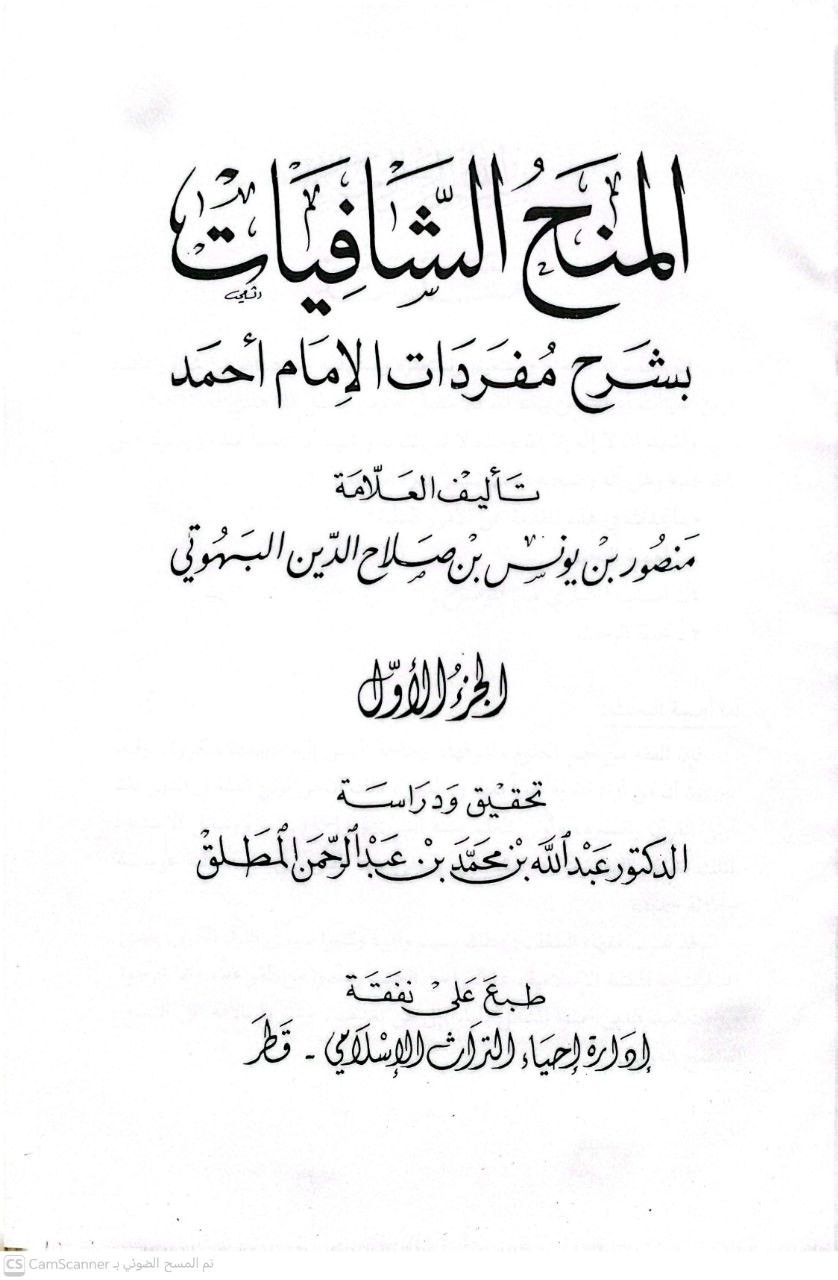 المنح الشَّافِيَات
بشرح مُفرَدَات الإمَام أحمَد
تأليف العلّامَة
مَنصُور بن يونس بن صَلاح الدّين البهُوتي
الجزءُ الأوّل
تحقيق وَدراسَة
الدكتور عَبْد اللّه بن محمَّد بن عَبْد الرّحمن المُطلق
طبعَ عَلى نفقَة
إدَارة إحيَاء التراث الإسْلَامي - قَطَر
CS CamScanner تم المسح الضوئي بـ